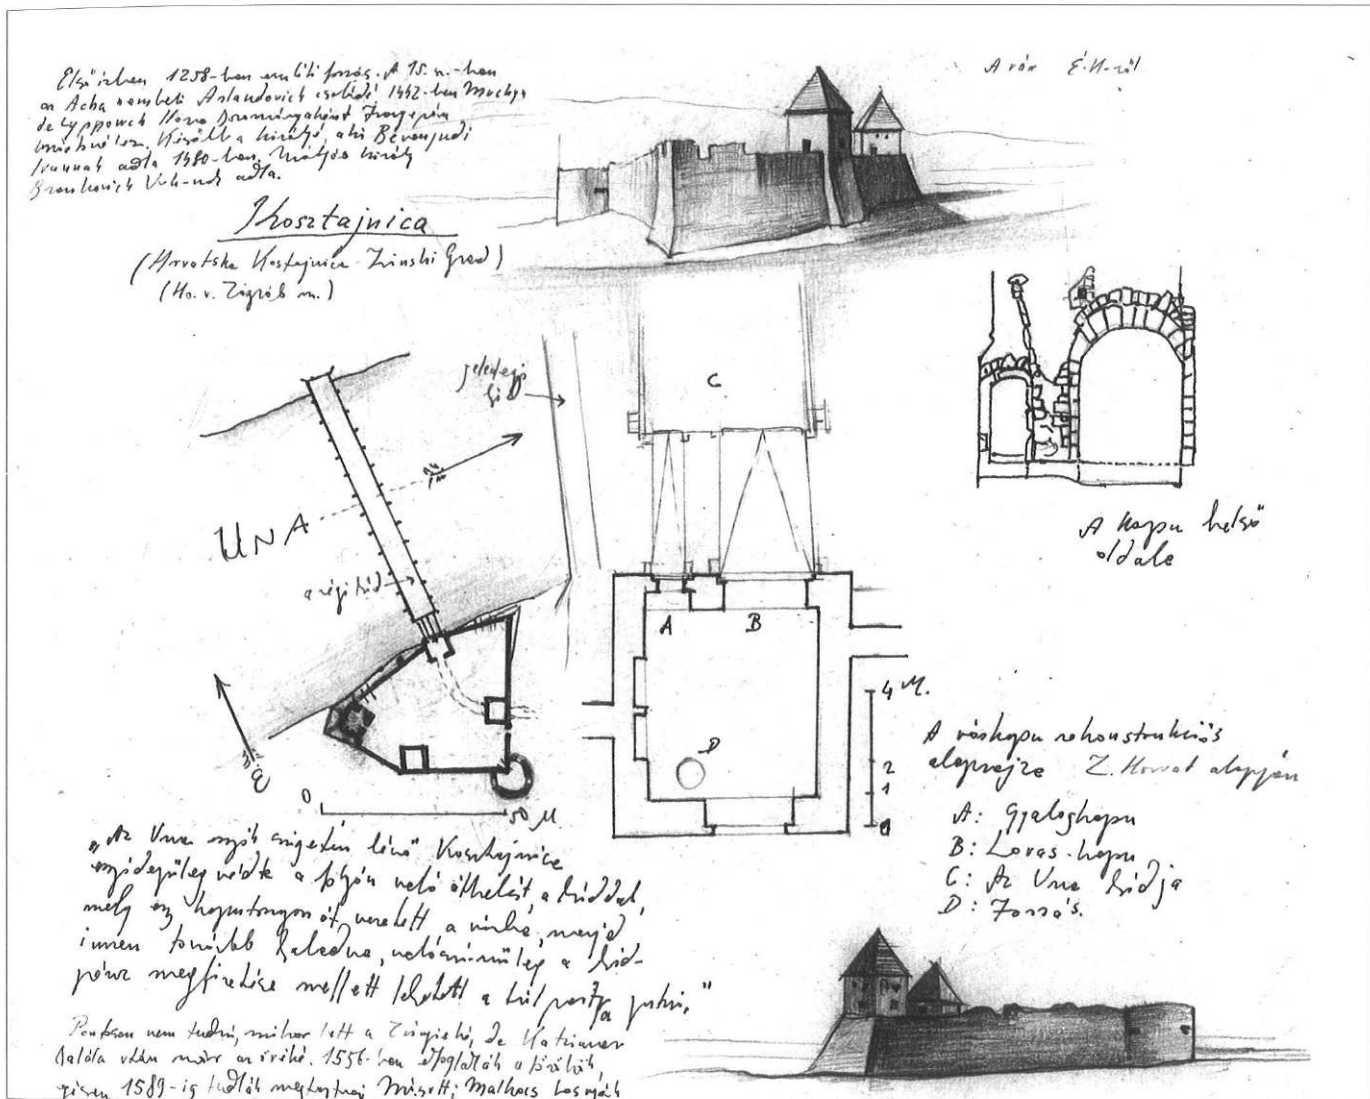 Először 1258-ban említi forrás. A 15. sz.-ban
az Acha nembeli Aslandovich családé 1442-ben
de
Később a királyé, aki
adta 1480-ban. Mátyás király
Vuk-nak adta.
Kosztajnica
(Hrvatska Kostajnica - Zrinski Grad)
(Ho. v. Zágráb m.)
A vár É.K-ről
jelenlegi
híd
C
UNA
a régi híd
A kapu belső
oldala
A
B
D
É
0
50 M.
4 M.
2
1
0
A várkapu rekonstrukciós
alaprajza Z. Horvat alapján
A: Gyalogkapu
B: Lovas-kapu
C: Az Una hídja
D: Forrás.
„Az Una egyik szigetén lévő Kosztajnica
egyidejűleg védte a folyón való átkelést, a híddal,
mely egy kaputornyon át vezetett a várba, majd
innen tovább haladva, valószínűleg a híd-
pénz megfizetése mellett lehetett a túl partra jutni."
Pontosan nem tudni, mikor lett a Zrínyieké, de Katzianer
halála után már az övéké. 1556-ban elfoglalták a törökök,
1589-ig tudták megtartani